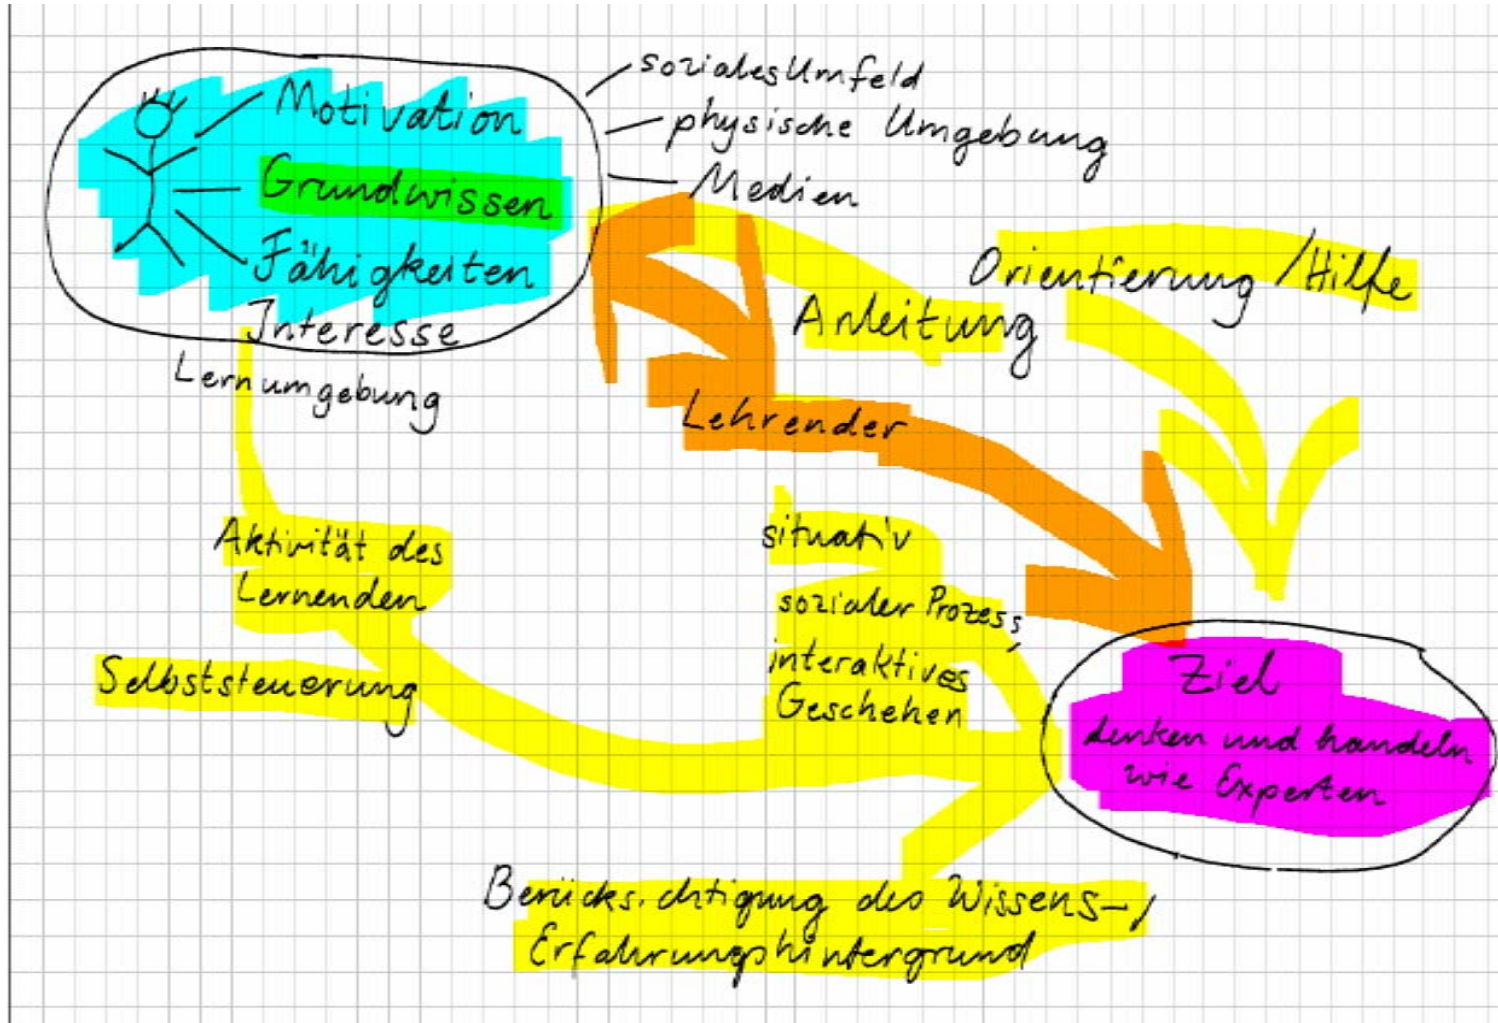 Motivation
Grundwissen
Fähigkeiten
Interesse
Lernumgebung
soziales Umfeld
physische Umgebung
Medien
Orientierung / Hilfe
Anleitung
Lehrender
Aktivität des
Lernenden
Selbststeuerung
situativ
sozialer Prozess,
interaktives
Geschehen
Ziel
denken und handeln
wie Experten
Berücksichtigung des Wissens-/
Erfahrungshintergrund